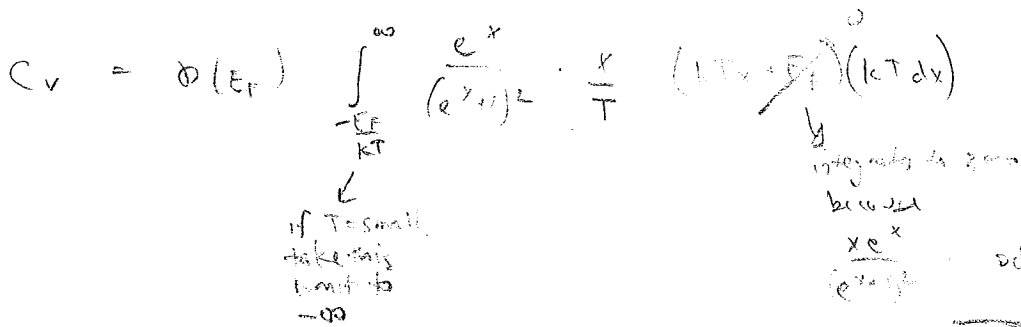 C_V = D(E_F) ∫_{-E_F/kT}^{∞} e^x/(e^x+1)^2 · x/T (kTx + E_F)(kT dx)
0
if T = small,
take this
limit to
-∞
integrates to zero
because
xe^x/(e^x+1)^2